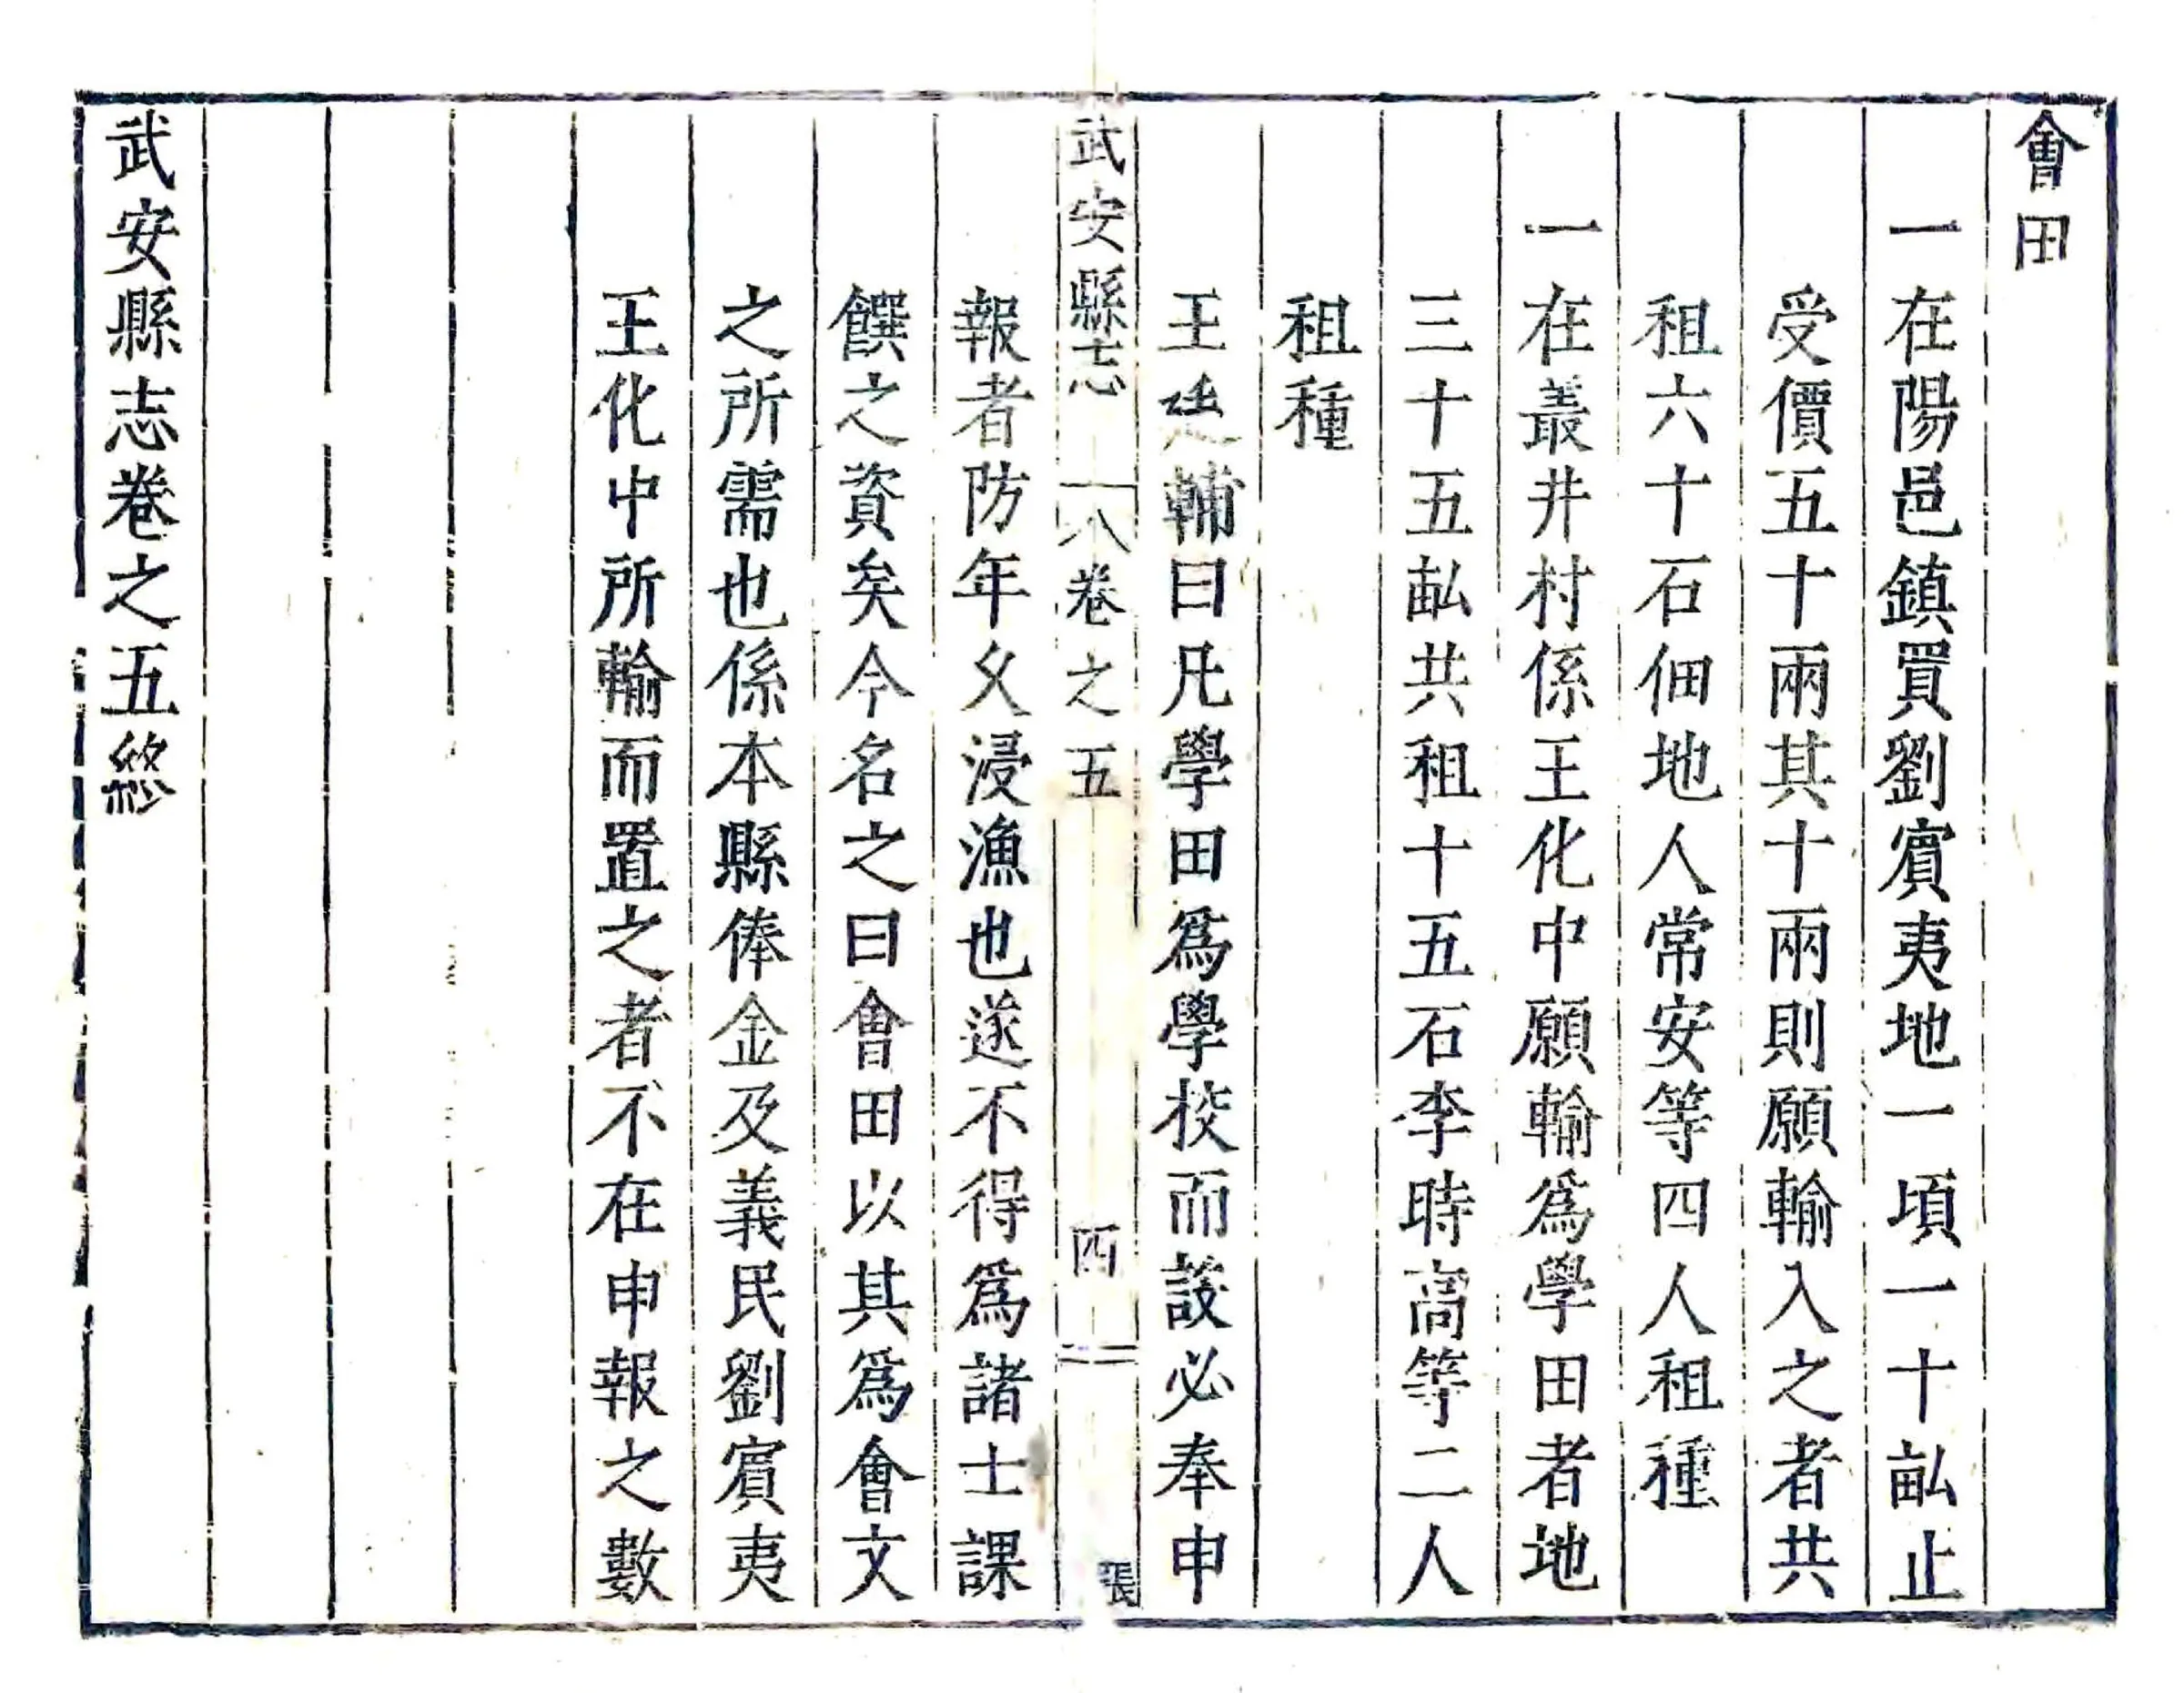 會田
一在陽邑鎮買劉賔夷地一頃一十畝止
受價五十兩其十兩則願輸入之者共
租六十石佃地人常安等四人租種
一在叢井村係王化中願輸為學田者地
三十五畝共租十五石李時高等二人
租種
王廷輔曰凡學田為學校而設必奉申
武安縣志 卷之五 四 張
報者防年久浸漁也遂不得為諸士課
饌之資矣今名之曰會田以其為會文
之所需也係本縣俸金及義民劉賔夷
王化中所輸而置之者不在申報之數
武安縣志卷之五終